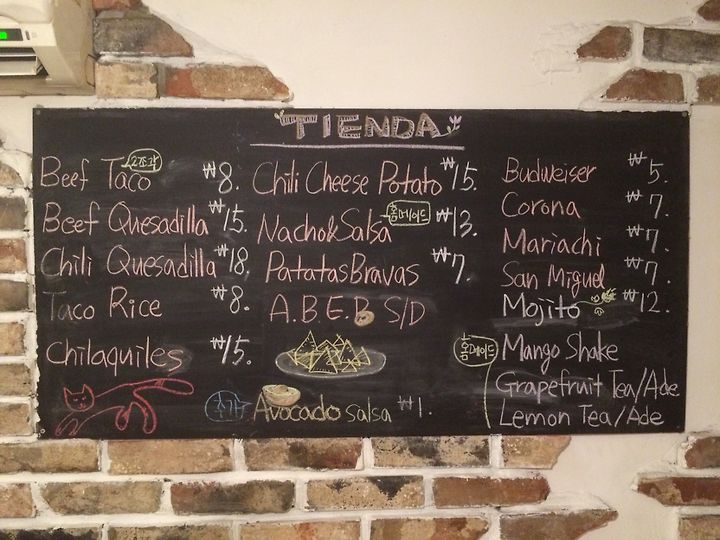 TIENDA
2조각
Beef Taco ₩8.
Beef Quesadilla ₩15.
Chili Quesadilla ₩18.
Taco Rice ₩8.
Chilaquiles ₩15.
Chili Cheese Potato ₩15.
홈메이드
Nacho&Salsa ₩13.
PatatasBravas ₩7.
A.B.E.B S/D
추가 Avocado salsa ₩1.
Budweiser ₩5.
Corona ₩7.
Mariachi ₩7.
San Miguel ₩7.
Mojito ₩12.
홈메이드 Mango Shake
Grapefruit Tea/Ade
Lemon Tea/Ade